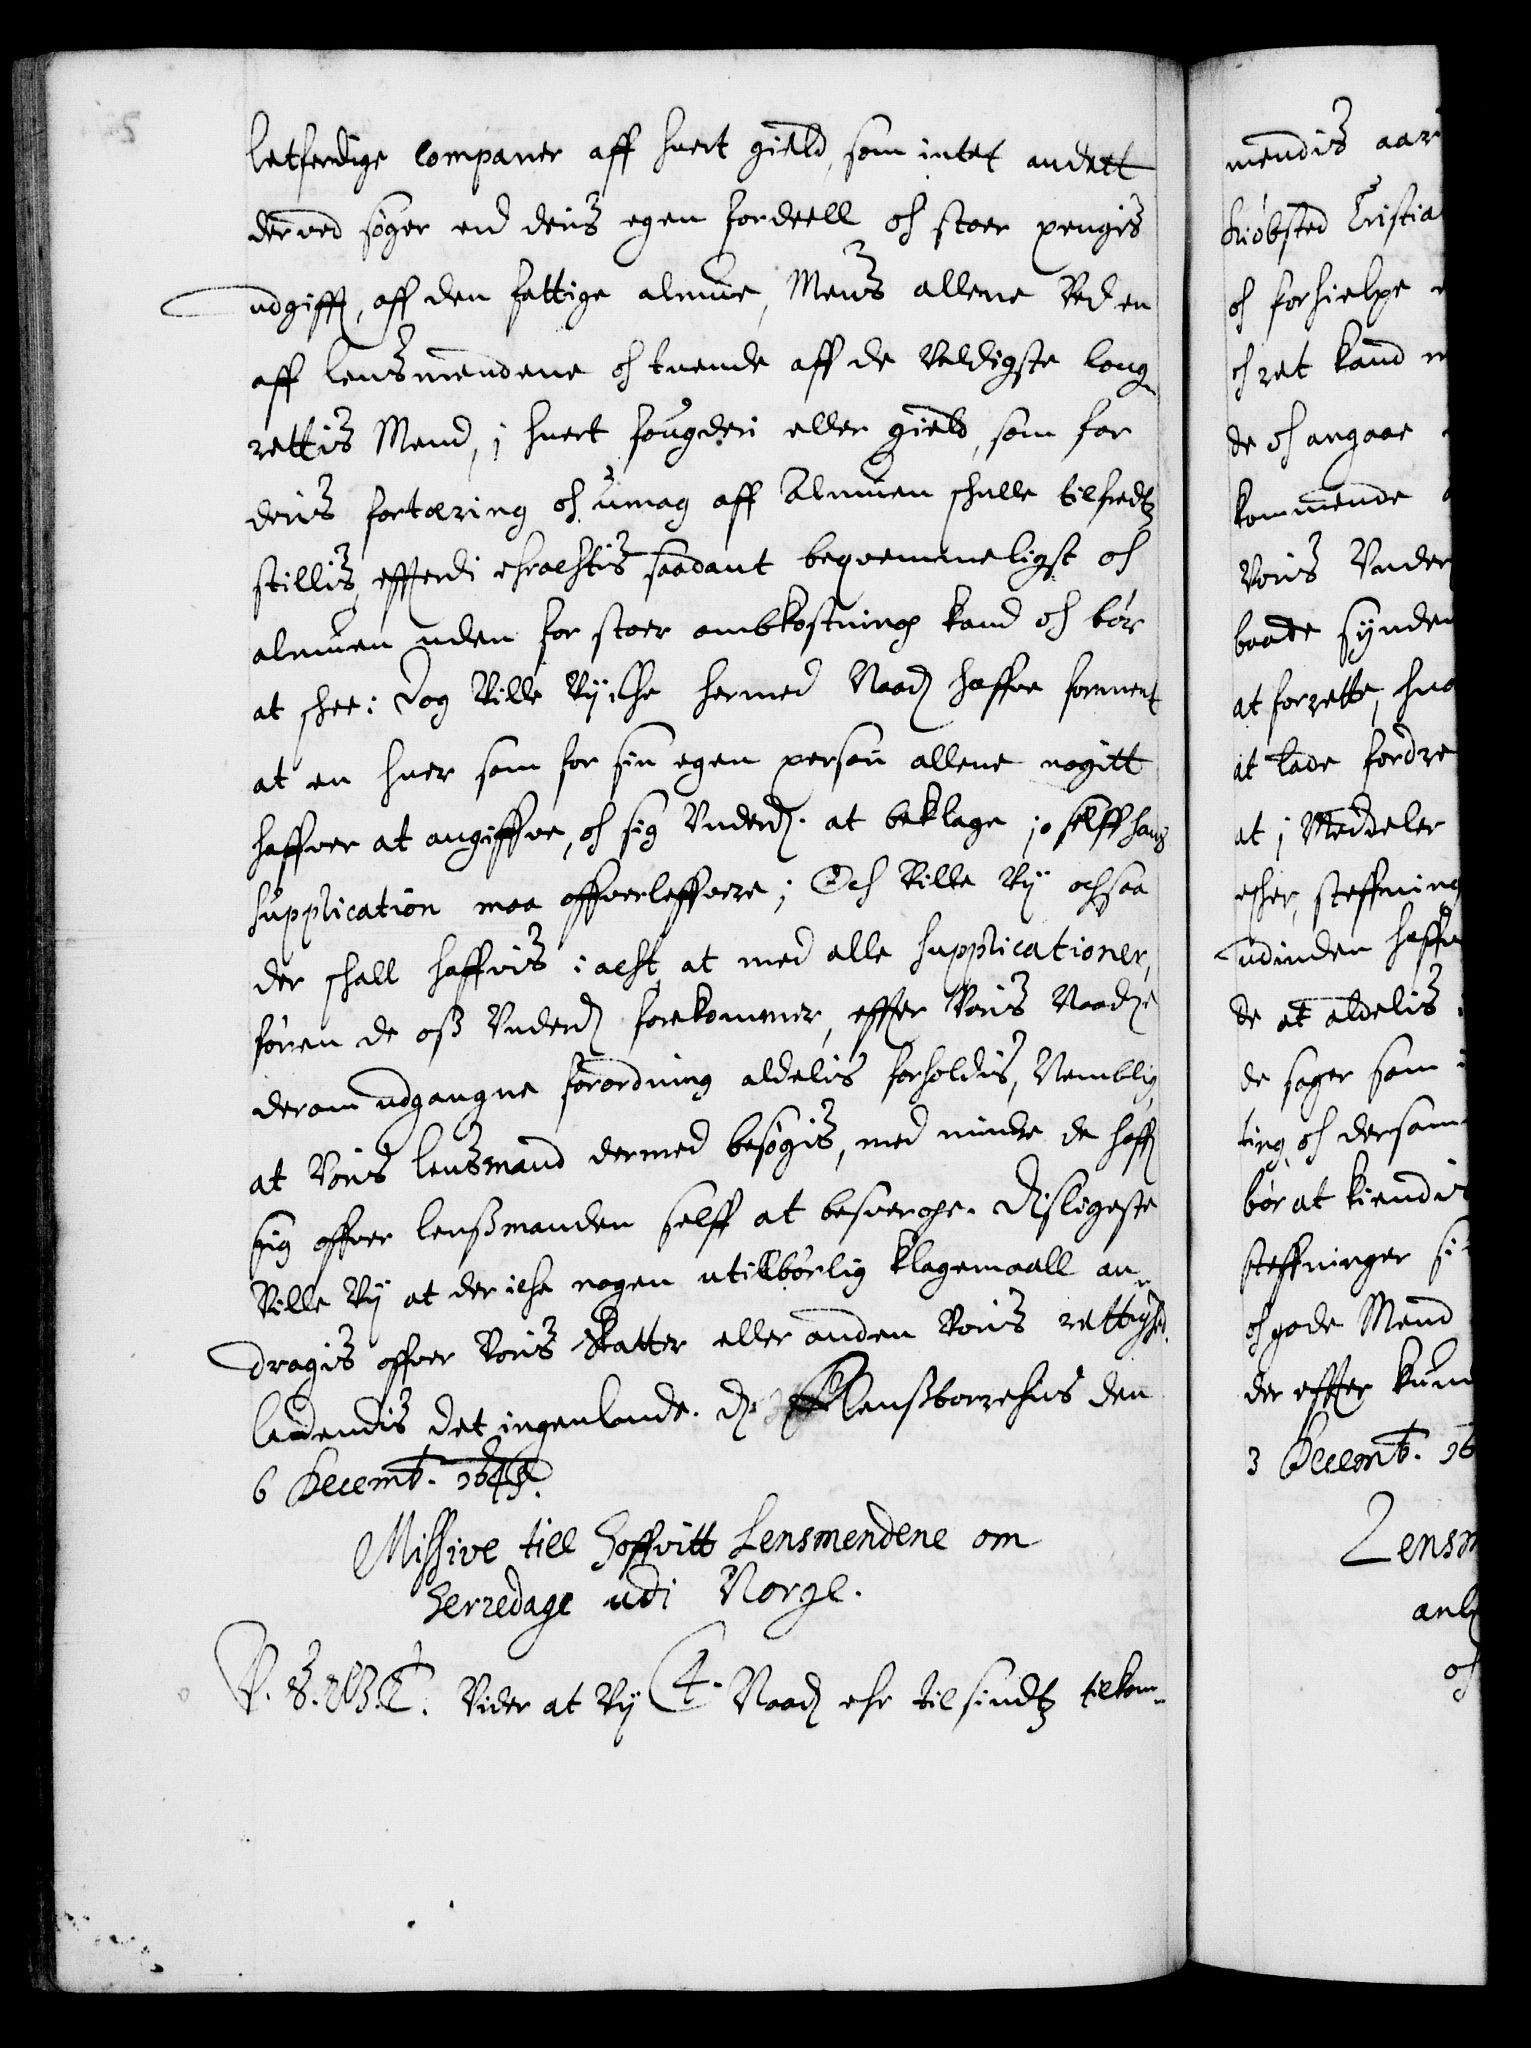 letferdige Companer aff huert gield, som intet andett
derved søger end deris egen fordeell och stoer pengis
udgifft, aff den fattige almue, Mens allene Ved en
aff lensmendene och tuende aff de Veldigste laug
rettis Mend, i huert fougderi eller gield, som for
deris fortæring och umag aff Almuen schulle tilfredtz
stillis, efftterdi eractis saadant beqvemmeligst och
almuen uden for stoer ombkostning kand och bør
at schee: Dog Ville Vii iche hermed Naadig haffue forment
at en huer som for sin egen person allene nogitt
haffuer at angiffve, och sig Underd. at beklage, jo selff hans
supplication maa offverleffvere; Och Ville Vii ochsaa
der schall haffvis i acht, at med alle supplicationer,
føren de oss Underd forekommer, effter Voris Naadige
derom udgangne forordning aldelis forholdis, Nemblig,
at Voris lensmand dermed besøgis, med mindre de haffuer
sig offver lenssmanden selff at besverge. Disligeste
Ville Vii at der iche nogen utilbørlig klagemaall an
dragis offver Voris Skatter eller anden Voris rettighed.
ladendis det ingenlunde. D. Flensborrehus den
6 Decemb.
Missive till Hoffvitt Lensmendene om
Herredage udi Norge.
Vider at Vii Naadig ehr til sindtz tilkom-
mendis aar
kiøbsted Cristia
och forhielpe
och ret kand
de och angaae
kommende
Voris Under
baade synden
at forrette, hua
at lade fordre
at i Meddeler
steffning
udinden haffu
de at aldelis
de sager som
ting, och dersom
bør at kiendis
steffninger si
och gode Mend
der effter kun
3 Decemb. 16
Lensm
anl
och